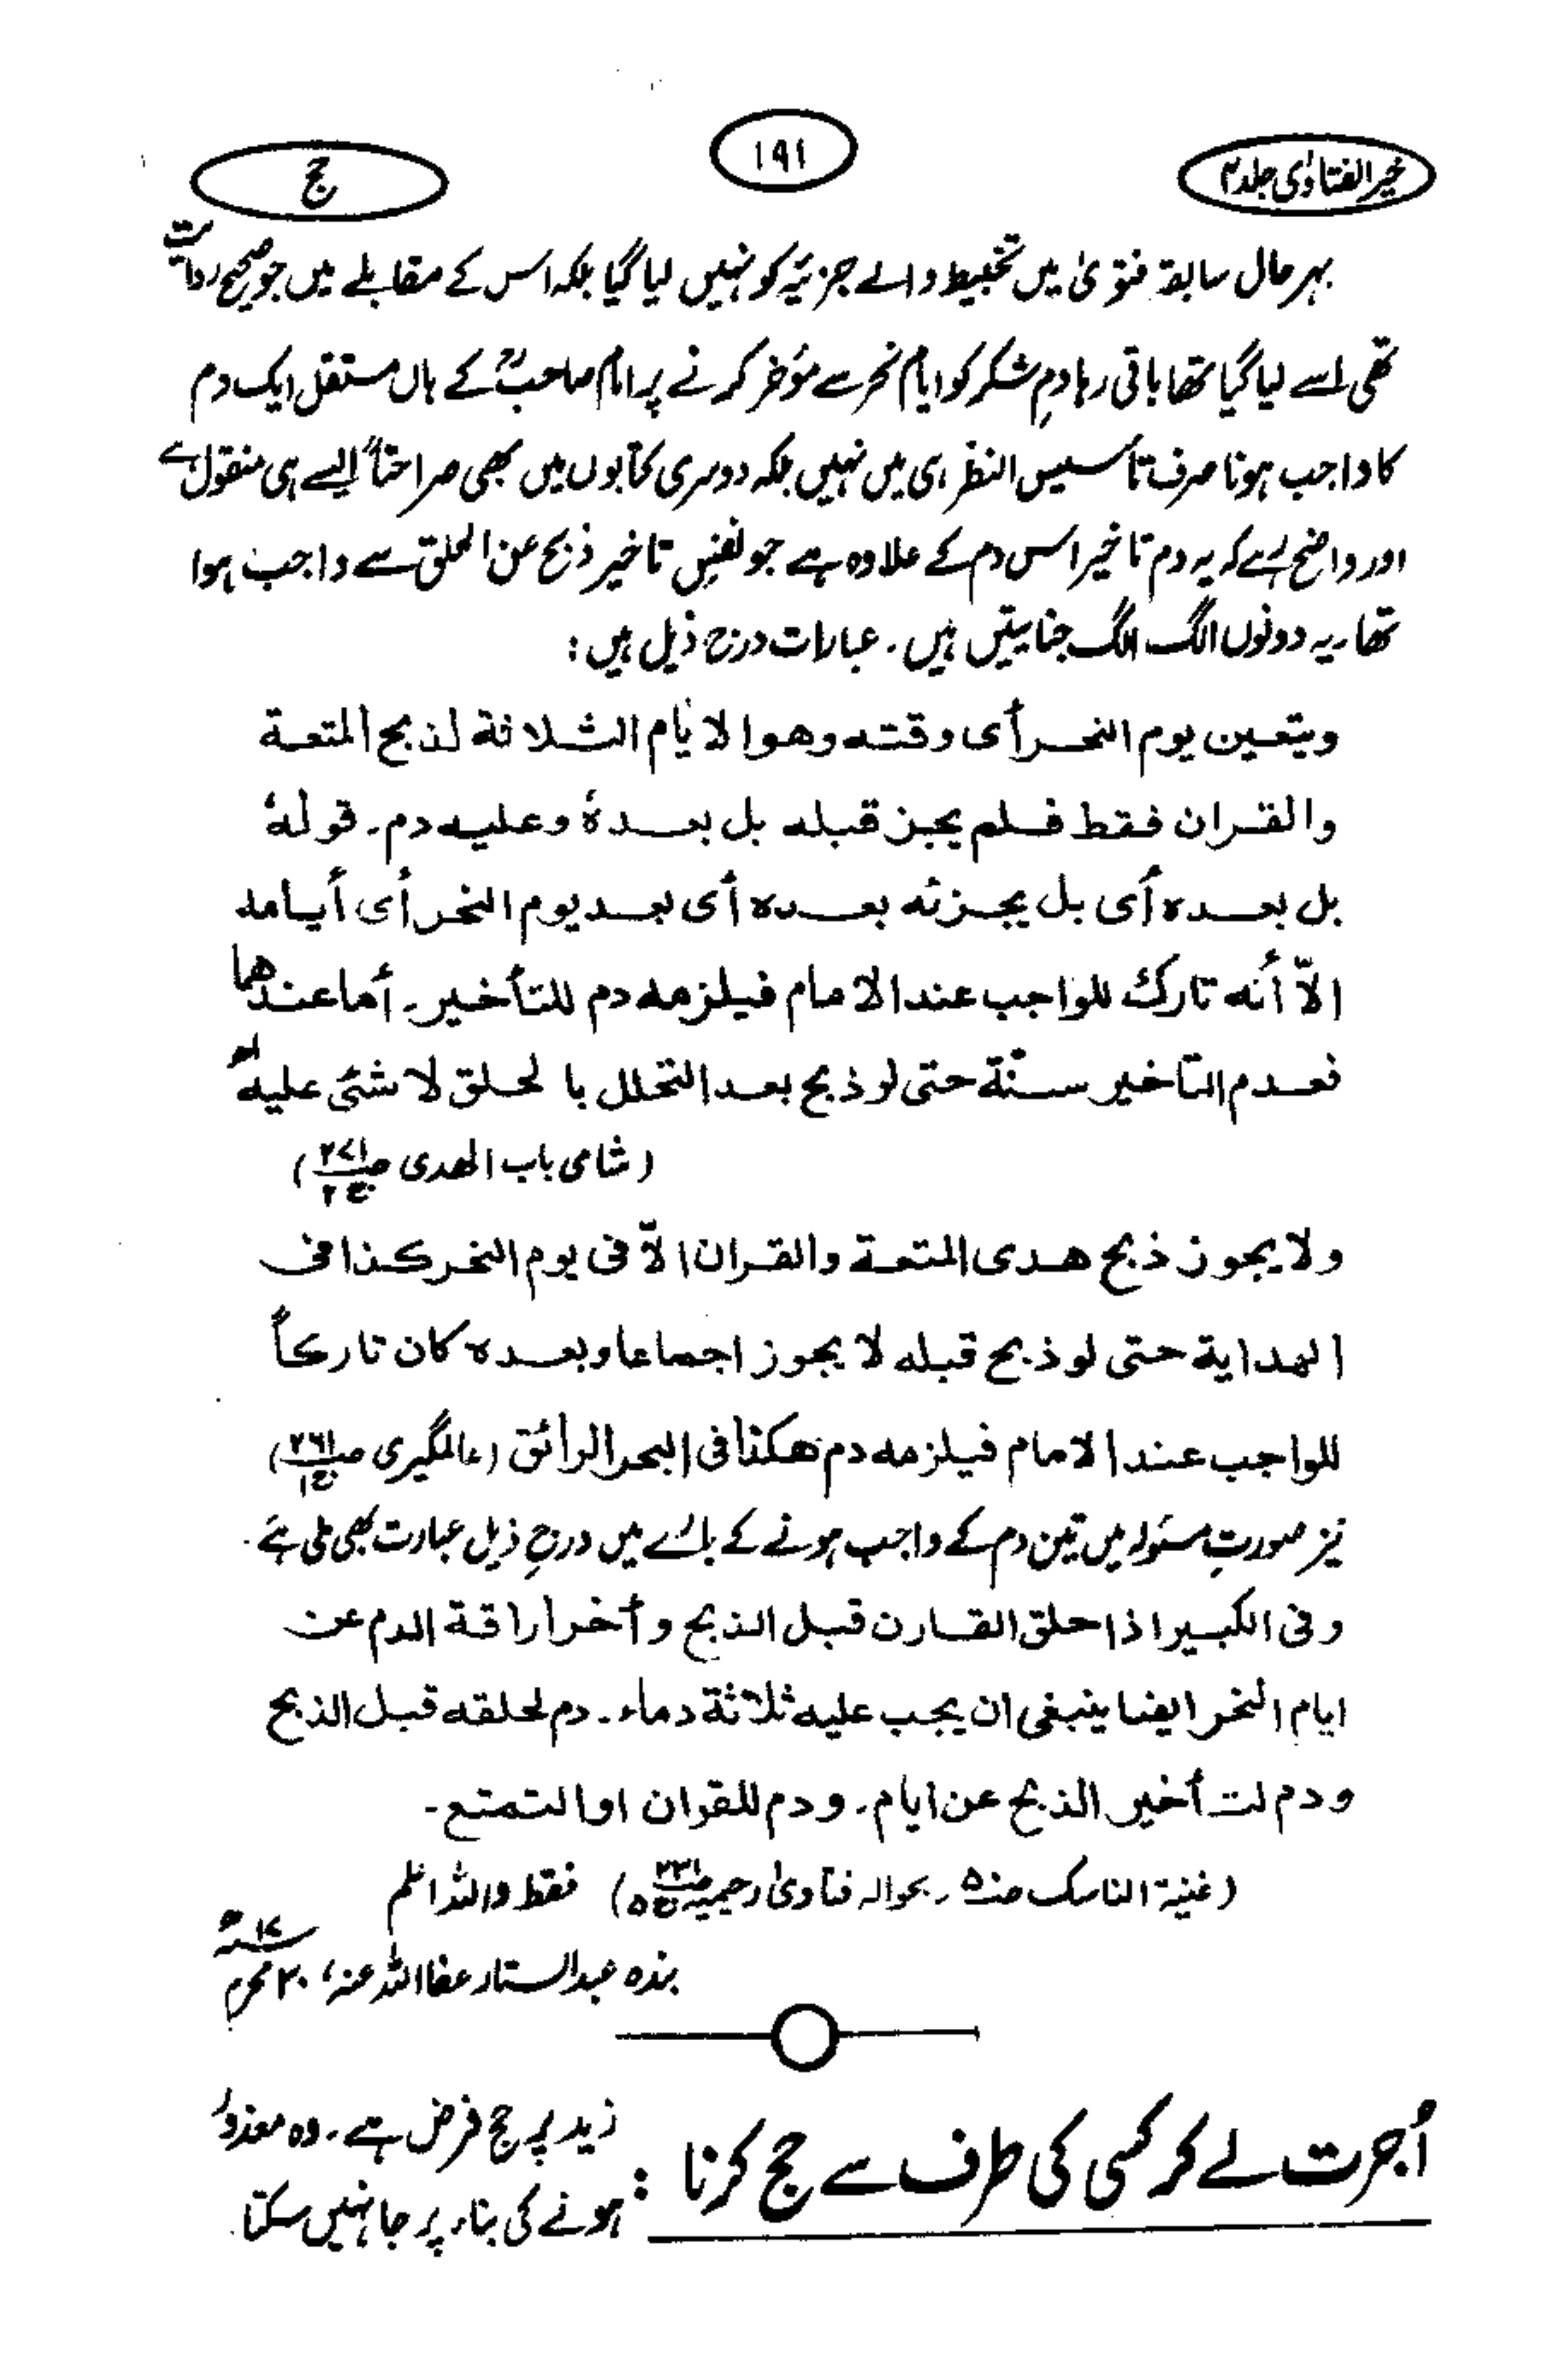 خیر الفتاوٰی جلد ۴
۱۹۱
حج
بہرحال سابقہ فتویٰ میں تخبیط والے جزئیہ کو نہیں لیا گیا بلکہ اس کے مقابلے میں جو صحیح روایت
تھی اسے لیا گیا تھا باقی رہا دمِ شکر کو ایام نحر سے مؤخر کرنے پر امام صاحبؒ کے ہاں مستقل ایک دم
کا واجب ہونا صرف تأسیس النظر ہی میں نہیں بلکہ دوسری کتابوں میں بھی صراحتاً ایسے ہی منقول ہے
اور واضح رہے کہ یہ دم تاخیر اس دم کے علاوہ ہے جو نفسِ تاخیر ذبح عن الحلق سے واجب ہوا
تھا، یہ دونوں الگ الگ جنایتیں ہیں۔ عبارات درج ذیل ہیں:
ويتعين يوم النحر أى وقته وهو الايام الثلاثة لذبح المتعة
والقران فقط فلم يجز قبله بل بعدهٗ وعليه دم۔ قولهٗ
بل بعده أى بل يجزئه بعده أى بعد يوم النحر أى أيامه
الّا أنه تارك للواجب عند الامام فيلزمه دم للتأخير۔ أما عندهما
فعدم التاخير سنّة حتى لو ذبح بعد التحلل بالحلق لا شئ عليه اھ
(شامی باب الھدی ص۲۷۱ ج۲)
ولا يجوز ذبح هدى المتعة والقران الّا فى يوم النحر كذا فى
الهداية حتى لو ذبح قبله لا يجوز اجماعا وبعده كان تاركاً
للواجب عند الامام فيلزمه دم هكذا فى البحر الرائق (عالمگیری ص۲۶۱ ج۱)
نیز صورتِ مسئولہ میں تین دم کے واجب ہونے کے بارے میں درج ذیل عبارت بھی ملی ہے۔
وفى الكبير اذا حلق القارن قبل الذبح وأخر اراقة الدم عن
ايام النحر ايضا ينبغى ان يجب عليه ثلاثة دماء۔ دم لحلقه قبل الذبح
ودم لتأخير الذبح عن ايام۔ ودم للقران او التمتع۔
(غنیۃ الناسک بحوالہ فتاویٰ رحیمیہ ج۵) فقط واللہ اعلم
بندہ عبدالستار عفا اللہ عنہ، ۲۰ محرم
اُجرت لے کر کسی کی طرف سے حج کرنا : زید پر حج فرض ہے۔ وہ معذور
ہونے کی بناء پر جا نہیں سکتا۔